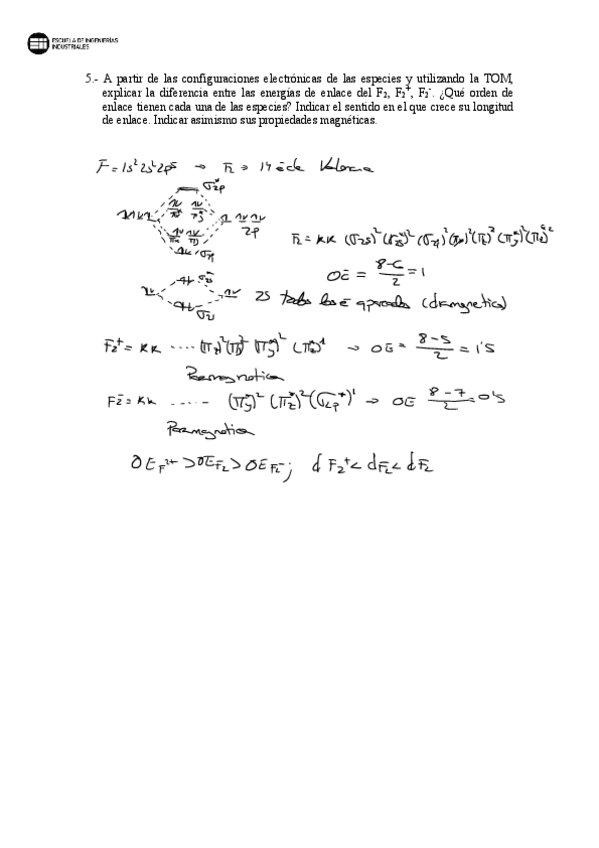 ESCUELA DE INGENIERÍAS
INDUSTRIALES
5.- A partir de las configuraciones electrónicas de las especies y utilizando la TOM,
explicar la diferencia entre las energías de enlace del F₂, F₂⁺, F₂⁻. ¿Qué orden de
enlace tienen cada una de las especies? Indicar el sentido en el que crece su longitud
de enlace. Indicar asimismo sus propiedades magnéticas.
F = 1s² 2s² 2p⁵ → F₂ → 14 ē de Valencia
σ*2p
2p
F₂ = KK (σ2s)² (σ2s*)² (σ2p)² (πx)² (πy)²
OE = 8-6/2 = 1
2s todos los ē apareados (diamagnética)
F₂⁺ = KK ····· → OE = 8-5/2 = 1'5
Paramagnetica
F₂⁻ = KK ····· (πy*)² (πz*)² (σ2p*)¹ → OE 8-7/2 = 0'5
Paramagnetica
OE F₂⁺ > OE F₂ > OE F₂⁻; d F₂⁺ < d F₂ < d F₂